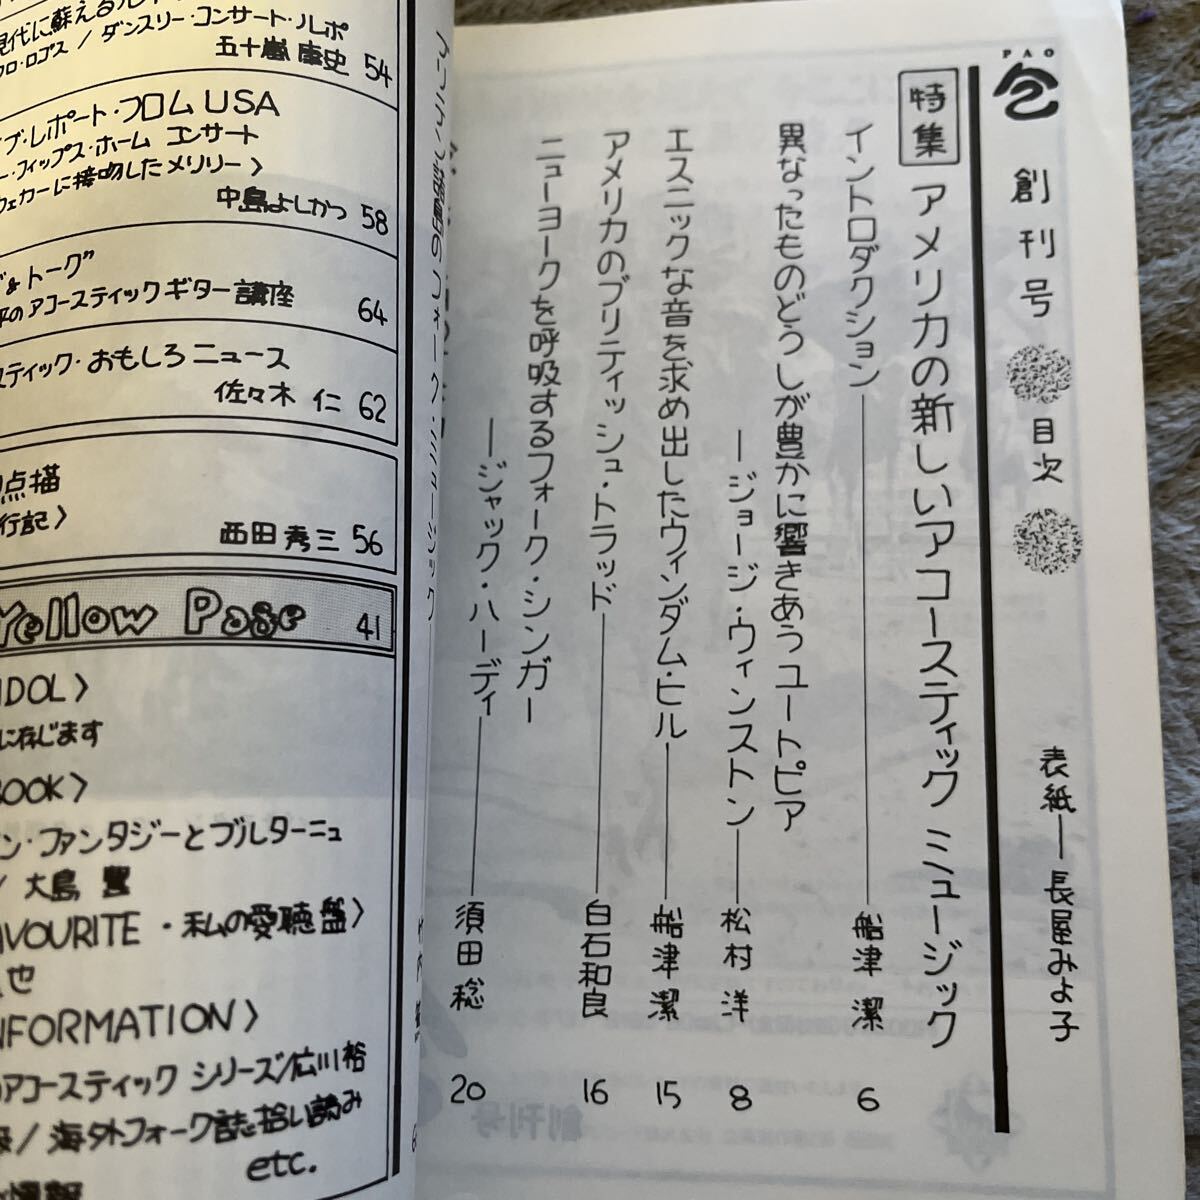 PAO
創刊号 目次
表紙―長屋みよ子
特集 アメリカの新しいアコースティック ミュージック
イントロダクション 船津 潔 6
異なったものどうしが豊かに響きあうユートピア
―ジョージ・ウィンストン 松村 洋 8
エスニックな音を求め出したウィンダム・ヒル 船津 潔 15
アメリカのブリティッシュ・トラッド 白石和良 16
ニューヨークを呼吸するフォーク・シンガー
―ジャック・ハーディ 須田 稔 20
現代に蘇える
ロ・ロゴス / ダンスリー・コンサート・ルポ
五十嵐 康史 54
ブ・レポート・フロム USA
ー・フィップス・ホーム コンサート
ウェカーに接吻したメリリー〉
中島よしかつ 58
& トーク”
のアコースティックギター講座 64
スティック・おもしろニュース
佐々木 仁 62
点描
行記〉
西田 秀三 56
Yellow Page 41
IDOL〉
に存じます
BOOK〉
ン・ファンタジーとブルターニュ
/ 大島 豊
AVOURITE・私の愛聴盤〉
也
NFORMATION〉
アコースティック シリーズ/広川裕
/ 海外フォーク誌拾い読み
etc.
情報
創刊号